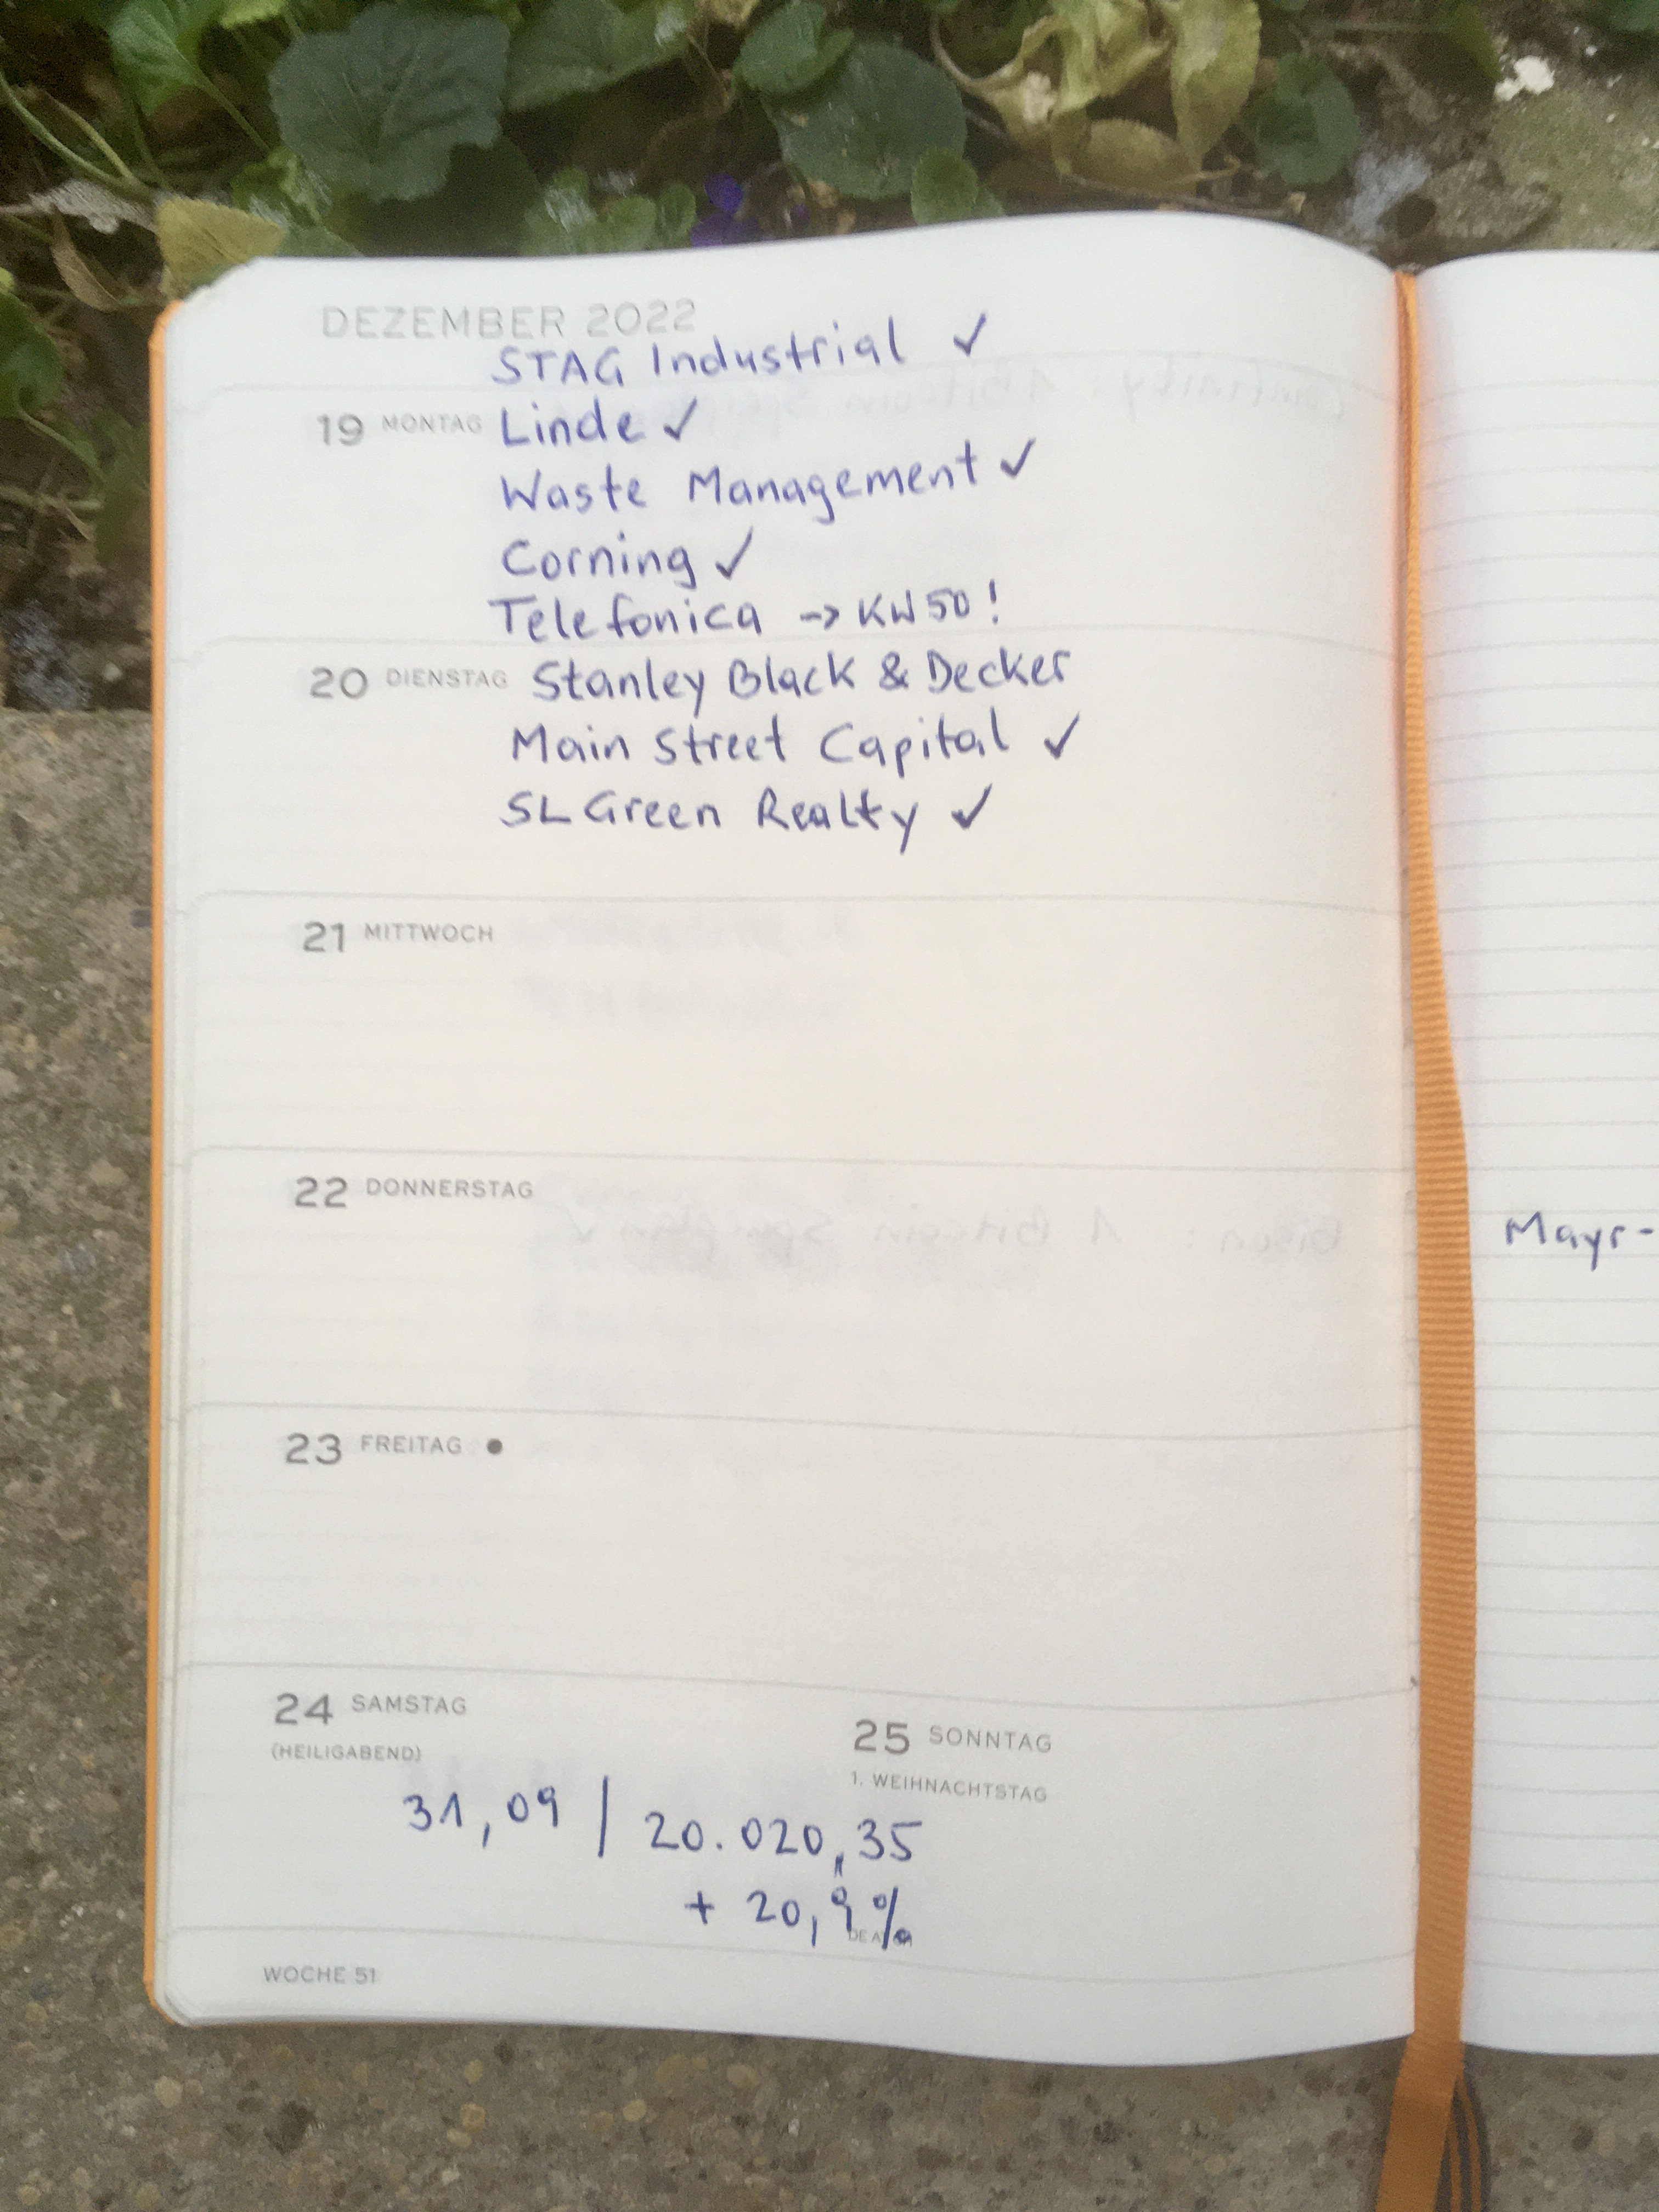 DEZEMBER 2022
STAG Industrial ✓
19 MONTAG Linde ✓
Waste Management ✓
Corning ✓
Telefonica -> KW50!
20 DIENSTAG Stanley Black & Decker
Main Street Capital ✓
SL Green Realty ✓
21 MITTWOCH
22 DONNERSTAG
23 FREITAG ●
24 SAMSTAG
(HEILIGABEND)
25 SONNTAG
1. WEIHNACHTSTAG
31,09 / 20.020,35
+ 20,9%
WOCHE 51
Mayr-